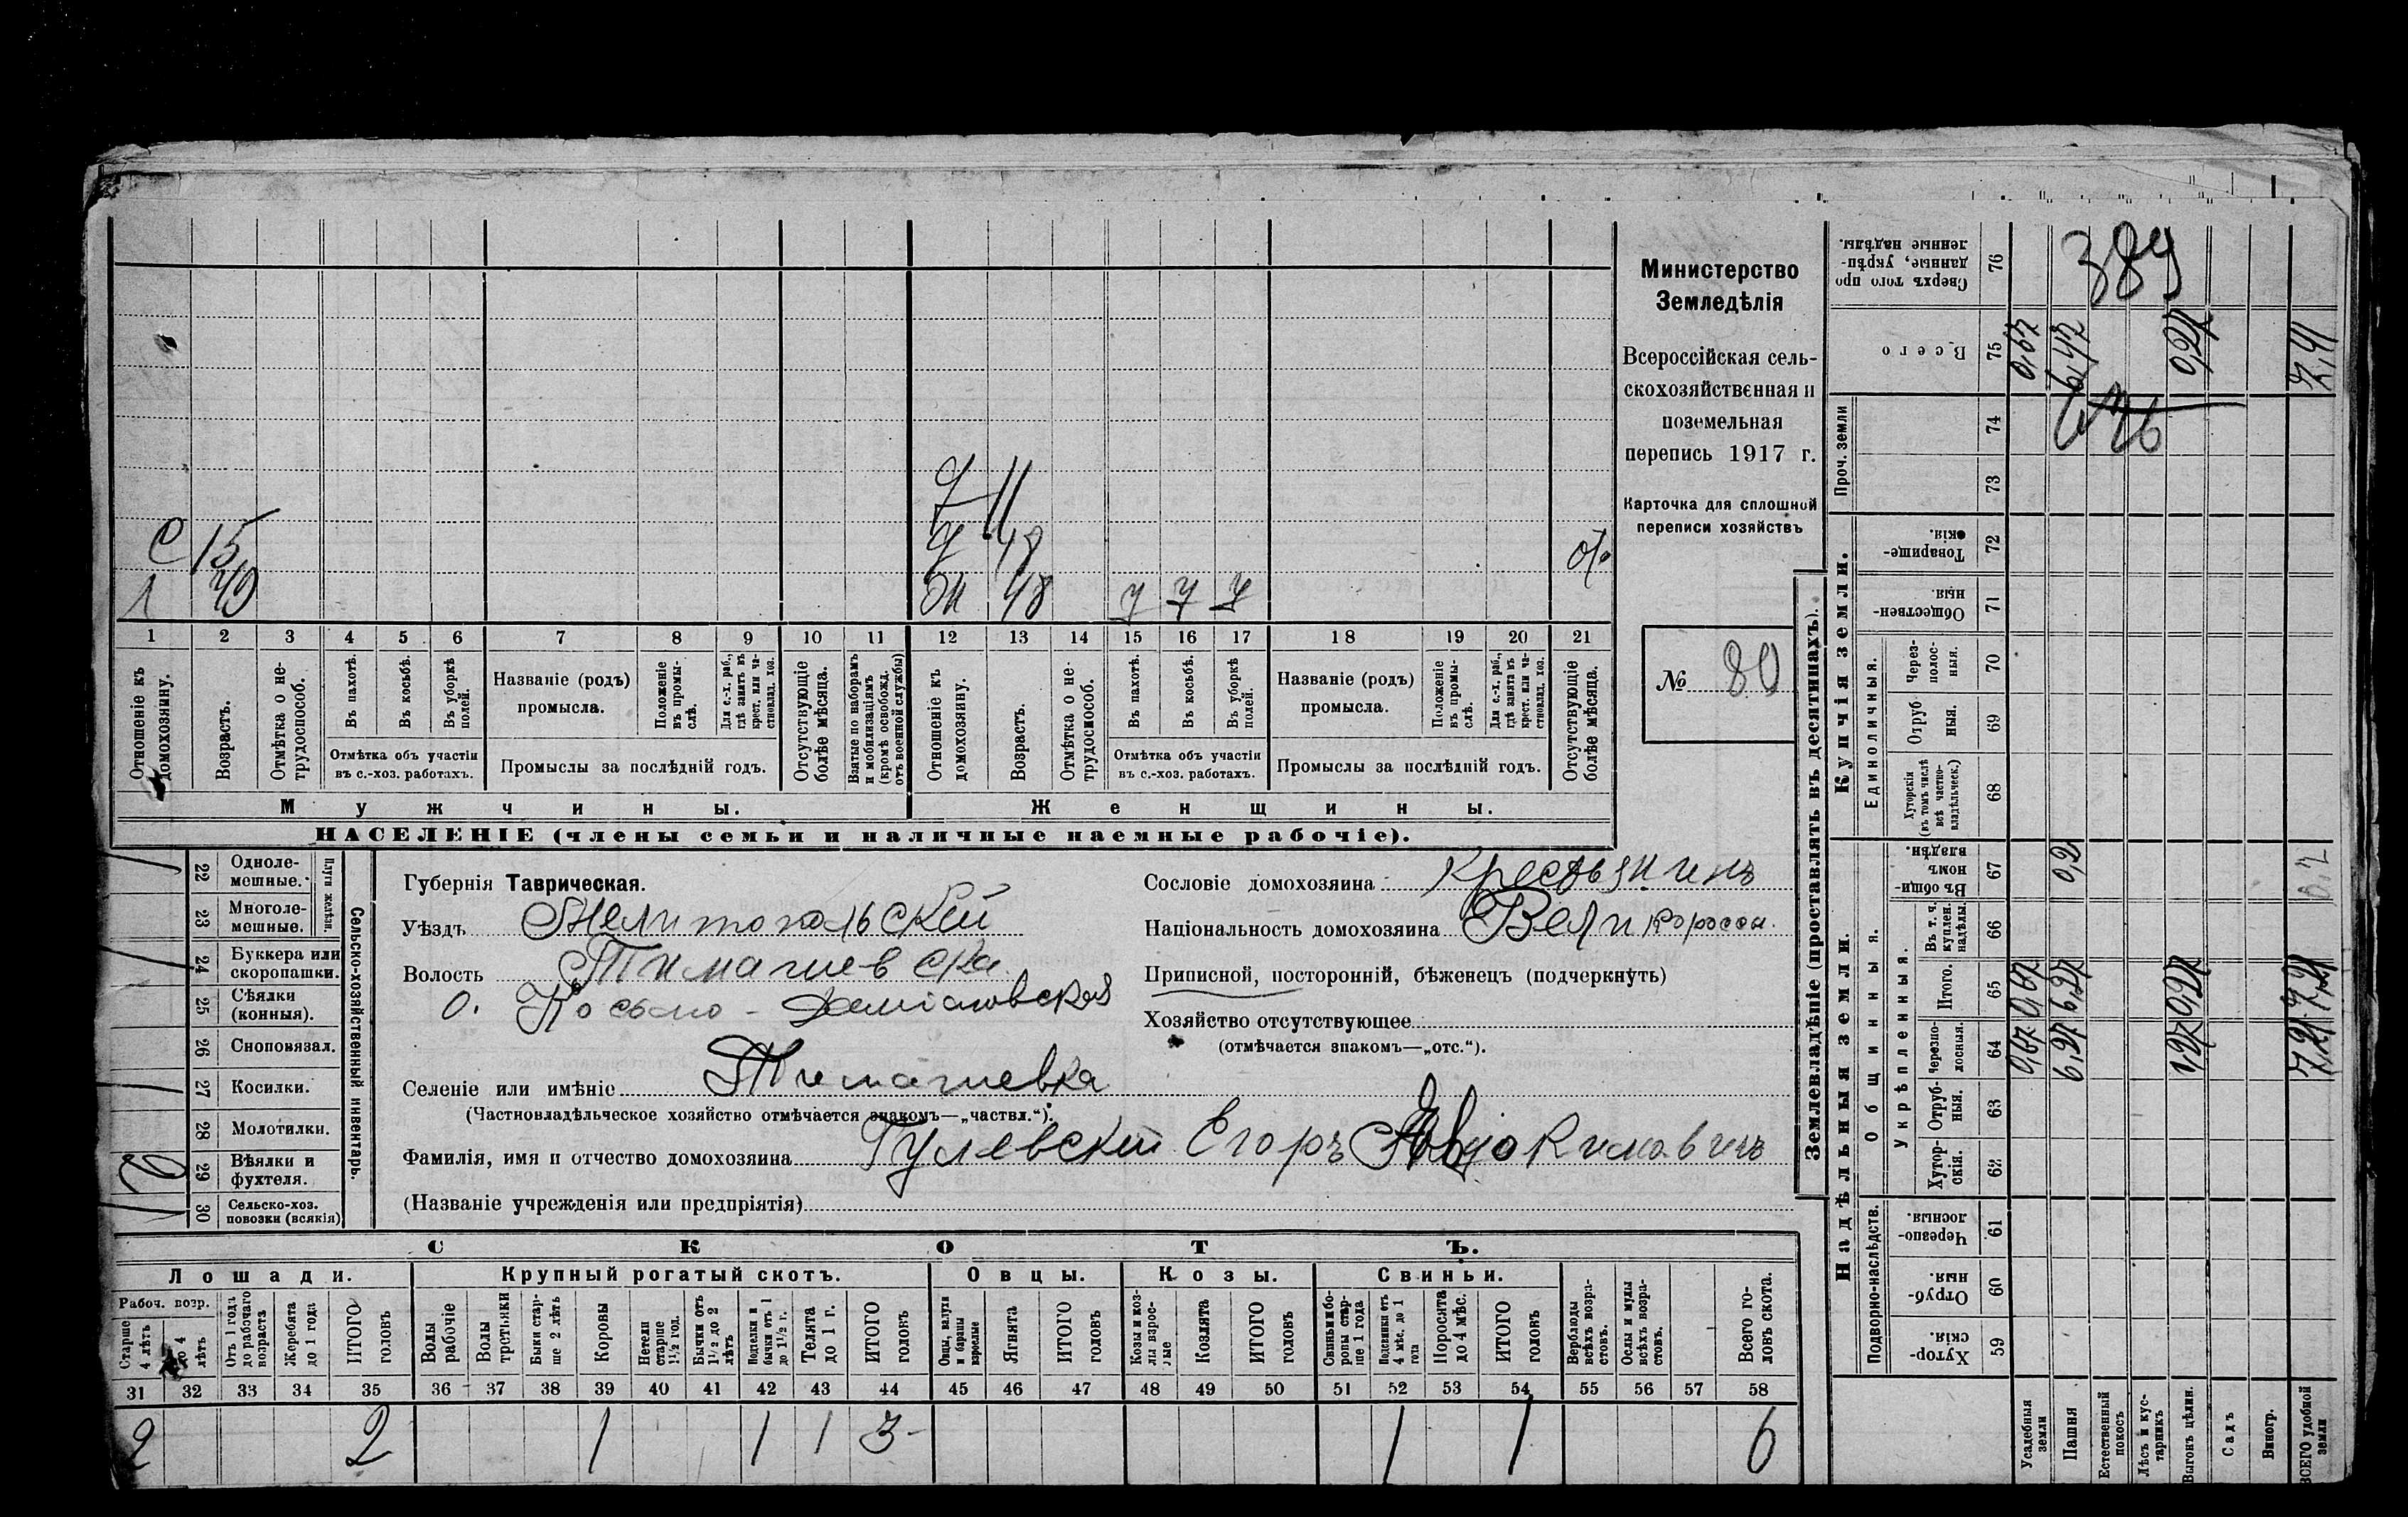 Министерство
Земледѣлія
Всероссійская сель-
скохозяйственная и
поземельная
перепись 1917 г.
Карточка для сплошной
переписи хозяйствъ
№ 80
Д 11
С 15
Д 18
1 49
Жн 48 У У У
1 2 3 4 5 6 7 8 9 10 11 12 13 14 15 16 17 18 19 20 21
Отношеніе къ домохозяину.
Возрастъ.
Отмѣтка о нетрудоспособ.
Въ пахотѣ.
Въ косьбѣ.
Въ уборкѣ полей.
Отмѣтка объ участіи
въ с.-хоз. работахъ.
Названіе (родъ)
промысла.
Положеніе въ промыслѣ.
Для с.-х. раб., гдѣ занятъ въ крест. или частновлад. хоз.
Промыслы за послѣдній годъ.
Отсутствующіе болѣе мѣсяца.
Взятые по наборамъ и мобилизаціямъ (кромѣ освобожд. отъ военной службы)
Отношеніе къ домохозяину.
Возрастъ.
Отмѣтка о нетрудоспособ.
Въ пахотѣ.
Въ косьбѣ.
Въ уборкѣ полей.
Отмѣтка объ участіи
въ с.-хоз. работахъ.
Названіе (родъ)
промысла.
Положеніе въ промыслѣ.
Для с.-х. раб., гдѣ занята въ крест. или частновлад. хоз.
Промыслы за послѣдній годъ.
Отсутствующіе болѣе мѣсяца.
Мужчины.
Женщины.
НАСЕЛЕНІЕ (члены семьи и наличные наемные рабочіе).
Сельско-хозяйственный инвентарь.
Плуги желѣзн.
22 Однолемешные.
23 Многолемешные.
24 Буккера или скоропашки.
25 Сѣялки (конныя).
26 Сноповязал.
27 Косилки.
28 Молотилки.
29 Вѣялки и фухтеля.
30 Сельско-хоз. повозки (всякія)
Губернія Таврическая.
Уѣздъ Мелитопольскій
Волость Тимашевска
о. Косьмо-Даміановская
Селеніе или имѣніе Тимашевка
(Частновладѣльческое хозяйство отмѣчается знакомъ—„частвл.“).
Фамилія, имя и отчество домохозяина Гулевскій Егоръ Авдокимовичъ
(Названіе учрежденія или предпріятія)
Сословіе домохозяина Крестьянинъ
Національность домохозяина Великороссъ.
Приписной, посторонній, бѣженец (подчеркнуть)
Хозяйство отсутствующее
(отмѣчается знакомъ—„отс.“).
СКОТЪ.
Лошади.
Крупный рогатый скотъ.
Овцы.
Козы.
Свиньи.
Рабоч. возр.
Старше 4 лѣтъ
До 4 лѣтъ
Отъ 1 года до рабочаго возраста
Жеребята до 1 года
ИТОГО головъ
Волы рабочіе
Волы третьяки
Быки старше 2 лѣтъ
Коровы
Нетели старше 1½ год.
Бычки отъ 1½ до 2 лѣтъ
Подтелки и бычки отъ 1 до 1½ г.
Телята до 1 г.
ИТОГО головъ
Овцы, валухи и бараны взрослые
Ягнята
ИТОГО головъ
Козы и козлы взрослые
Козлята
ИТОГО головъ
Свиньи и боровы старше 1 года
Подсвинки отъ 4 мѣс. до 1 гота
Поросята до 4 мѣс.
ИТОГО головъ
Верблюды всѣхъ возрастовъ.
Ослы и мулы всѣхъ возрастовъ.
Всего головъ скота.
31 32 33 34 35 36 37 38 39 40 41 42 43 44 45 46 47 48 49 50 51 52 53 54 55 56 57 58
2 2 1 1 1 3 1 1 6
Землевладѣніе (проставлять въ десятинахъ).
Надѣльныя земли.
Купчія земли.
Проч. земли
Подворно-наслѣдств.
Общинныя.
Укрѣпленныя.
Единоличныя.
59 Хуторскія
60 Отрубныя
61 Черезполосныя.
62 Хуторскія.
63 Отрубныя.
64 Черезполосныя.
65 Итого.
66 Въ т. ч. куплен. надѣлы.
67 Въ общинномъ владѣн.
68 Хуторскія (въ томъ числѣ всѣ частновладѣльческ.)
69 Отрубныя.
70 Черезполосныя.
71 Общественныя.
72 Товарищескія.
73
74
75 Всего
76 Сверхъ того проданные, укрѣпленные надѣлы.
Усадебныя земли 0,67 0,67 0,67
Пашня 6,27 6,27 0,2 6,47
Естественный покосъ
Лѣсъ и кустарникъ
Выгонъ цѣлин. 0,27 0,27
Садъ
Виногр.
ВСЕГО удобной земли 7,21 7,21 0,2 7,41
389